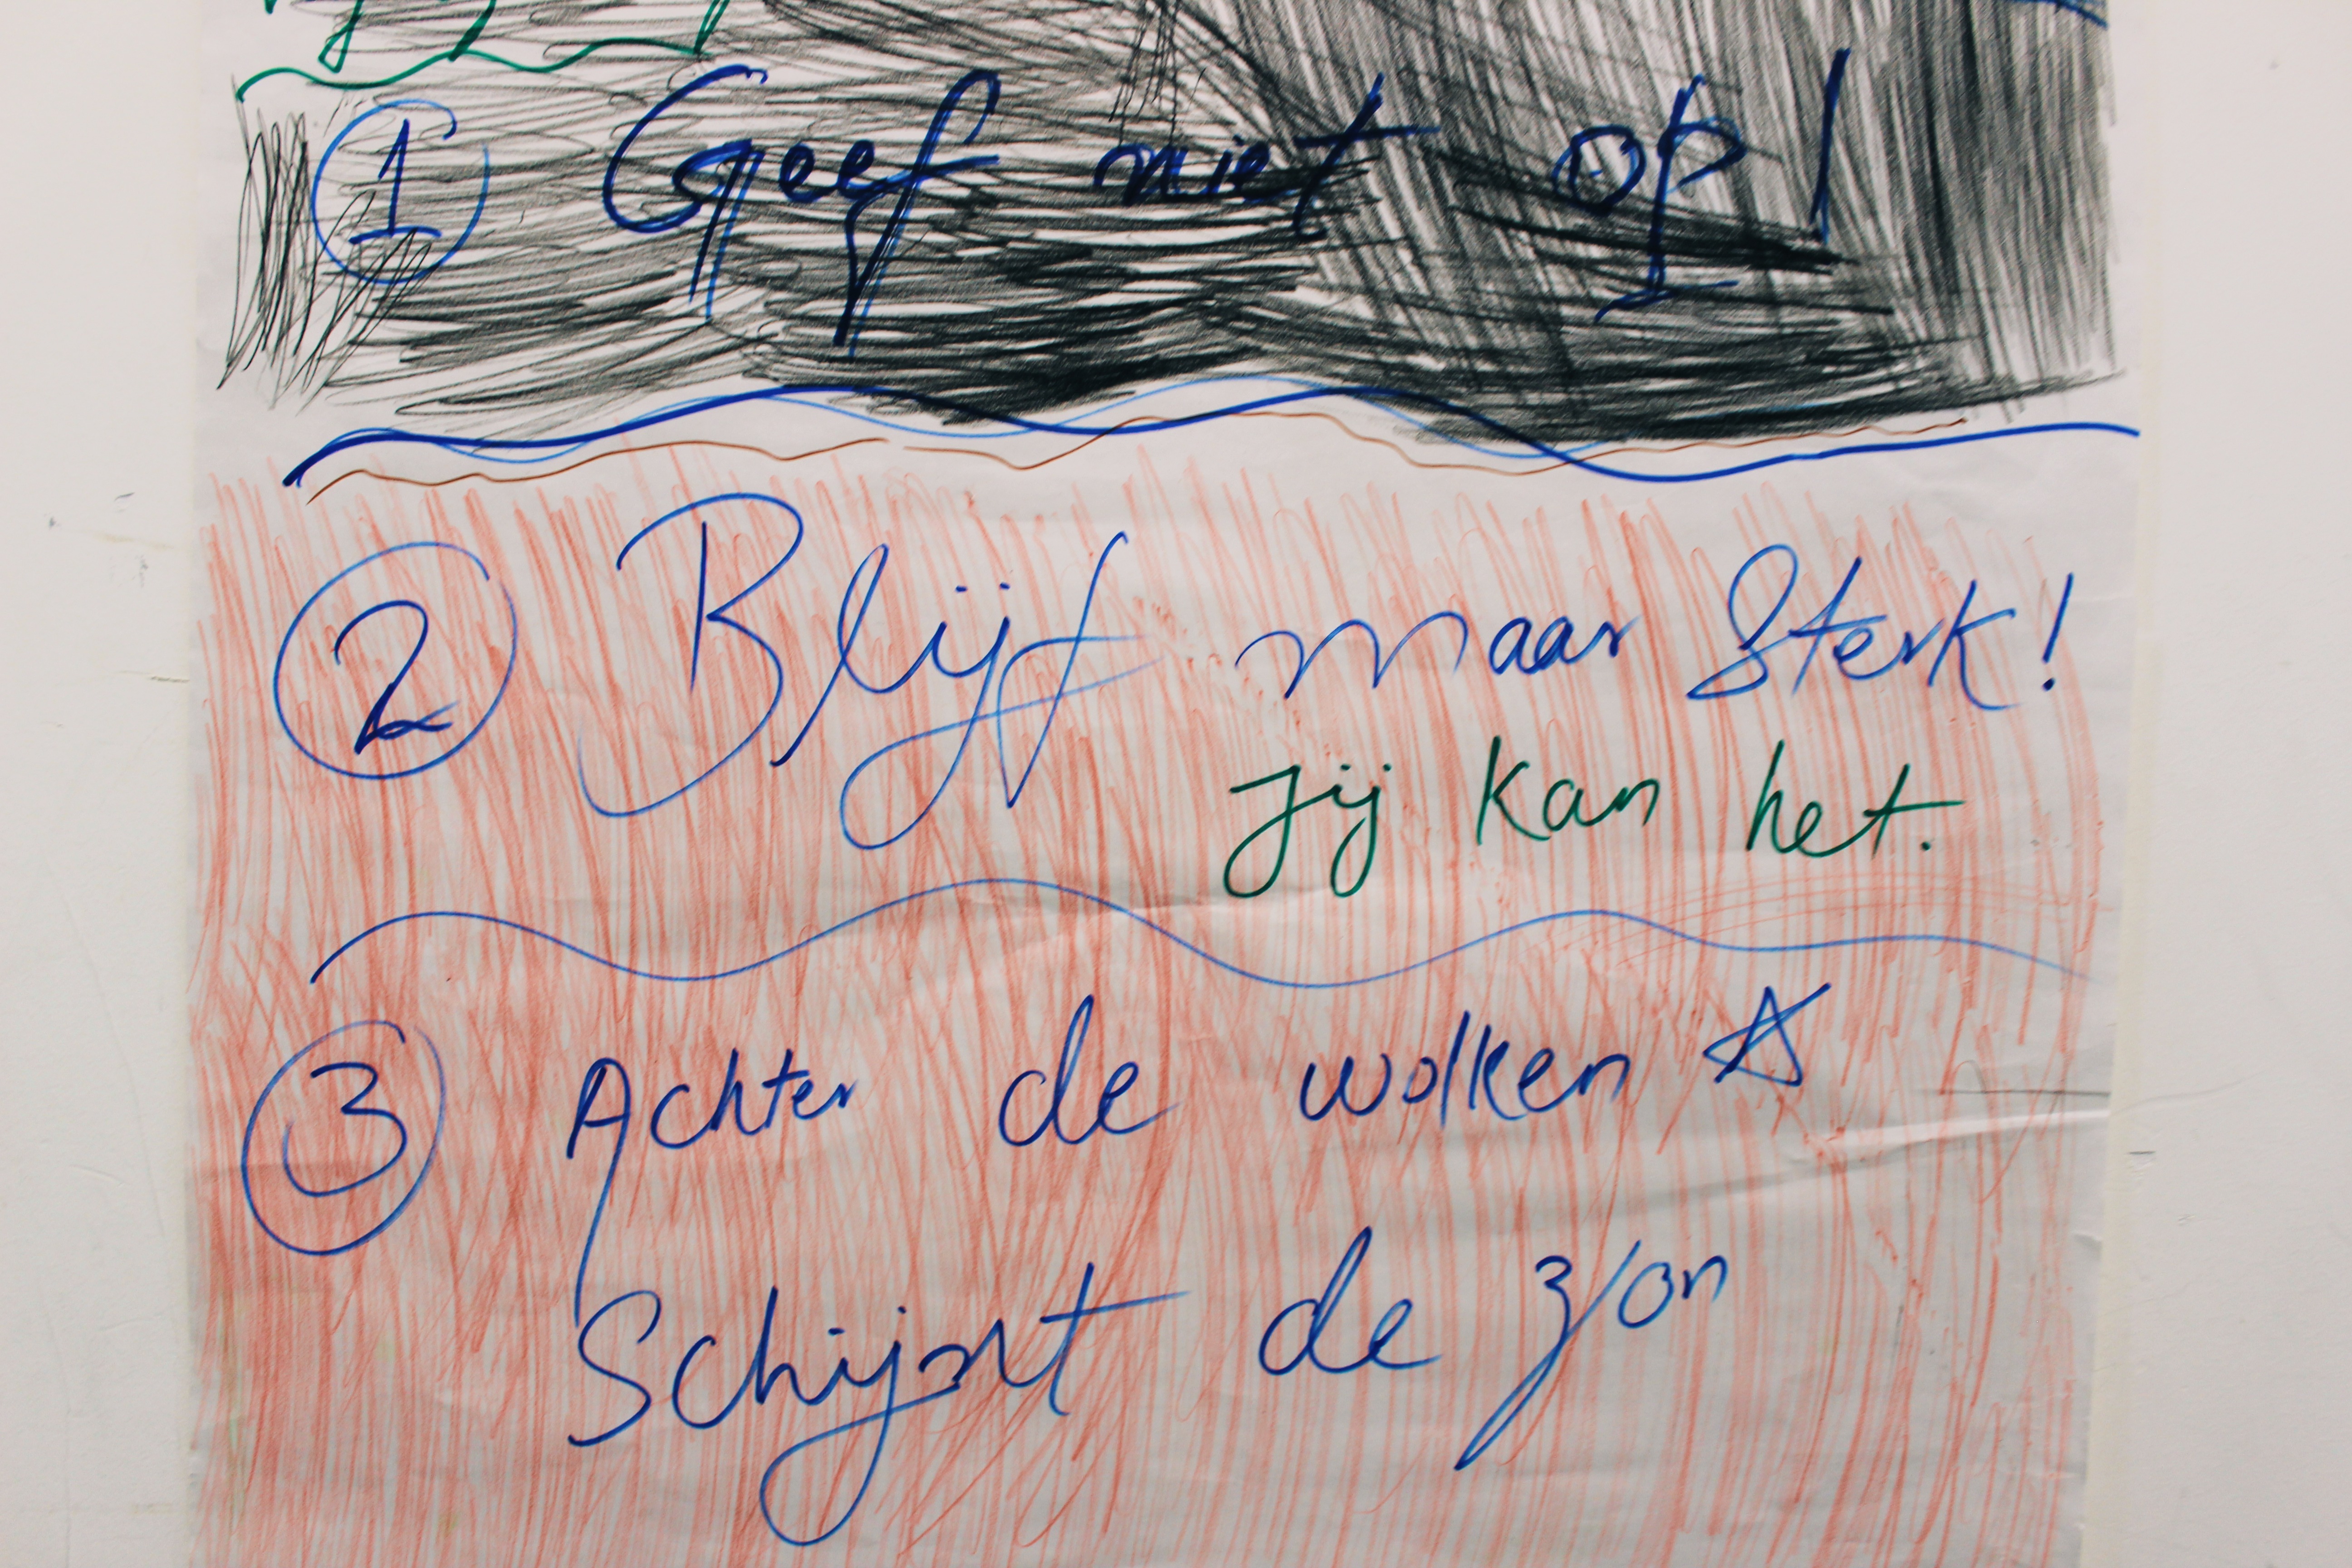 1 Geef niet op!
2 Blijf maar sterk!
Jij kan het.
3 Achter de wolken
Schijnt de zon